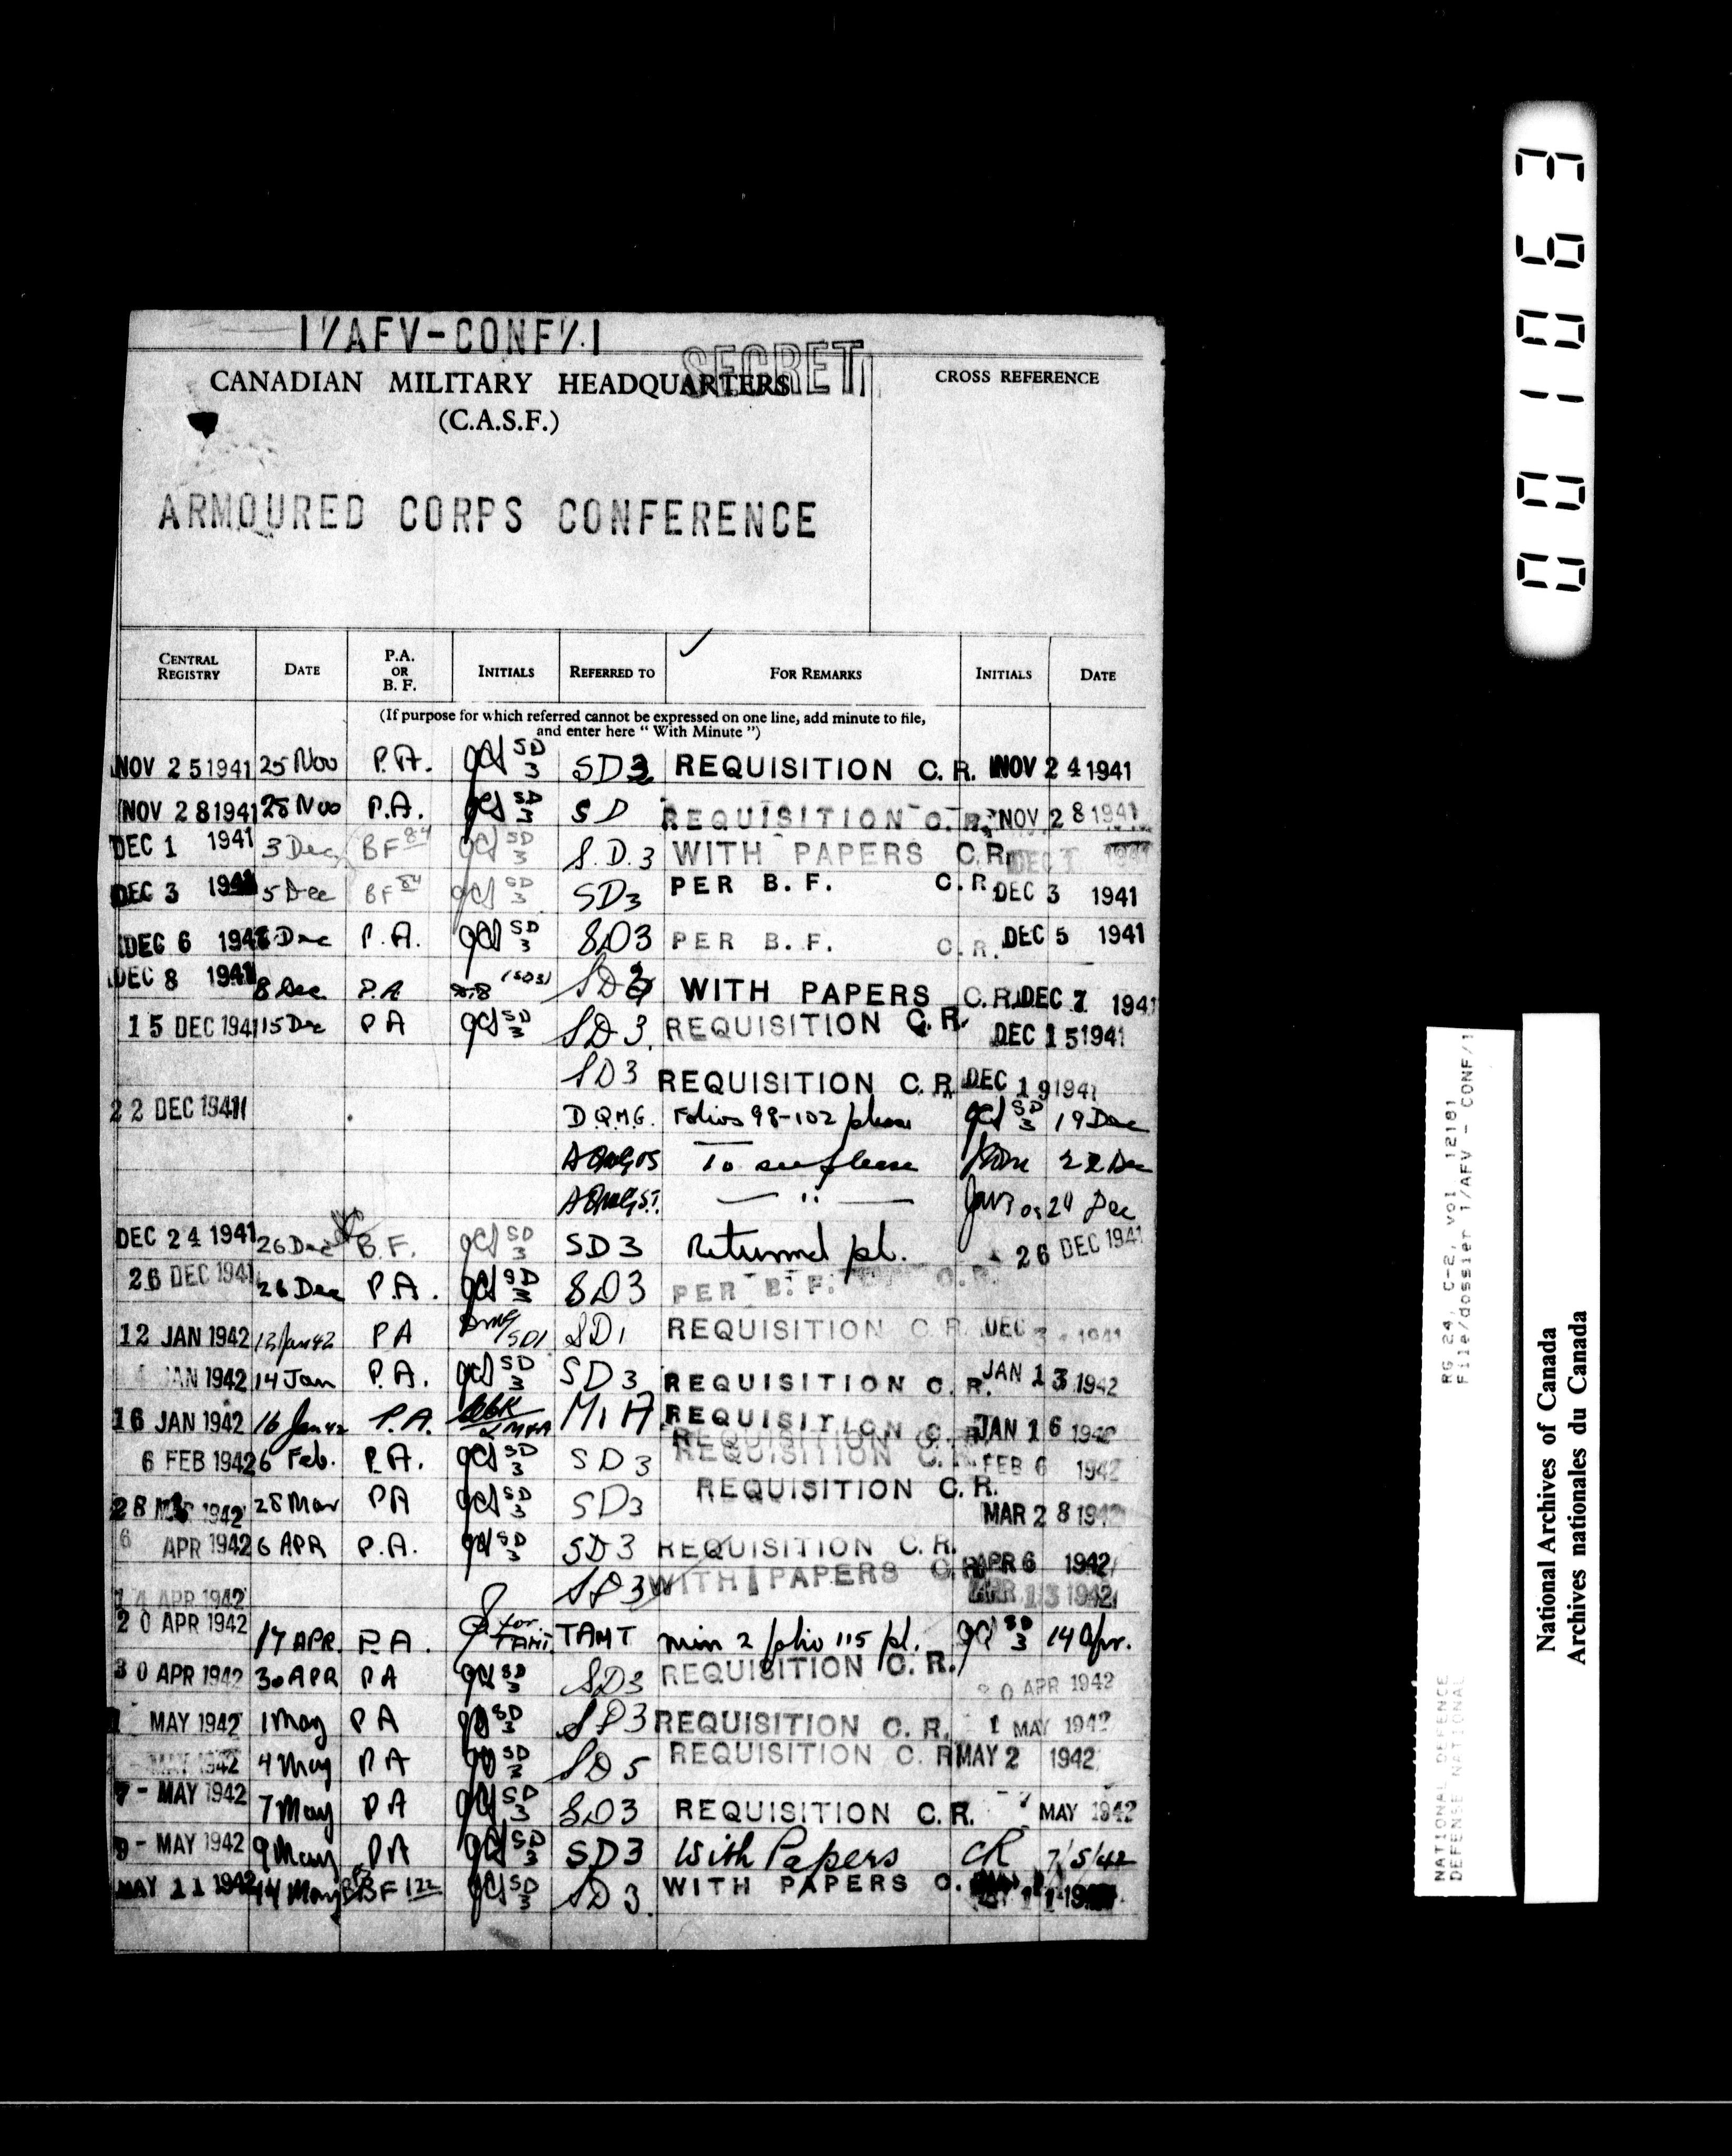 1/AFV-CONF/1
SECRET
CANADIAN MILITARY HEADQUARTERS
(C.A.S.F.)
CROSS REFERENCE
ARMOURED CORPS CONFERENCE
CENTRAL REGISTRY DATE P.A. OR B. F. INITIALS REFERRED TO FOR REMARKS INITIALS DATE
(If purpose for which referred cannot be expressed on one line, add minute to file,
and enter here “ With Minute ”)
NOV 25 1941 25 Nov P.A. SD 3 SD3 REQUISITION C.R. NOV 24 1941
NOV 28 1941 28 Nov P.A. SD 3 SD REQUISITION C.R. NOV 28 1941
DEC 1 1941 3 Dec BF 84 SD 3 S.D.3 WITH PAPERS C.R. DEC 1 1941
DEC 3 1941 5 Dec BF 84 SD 3 SD3 PER B.F. C.R. DEC 3 1941
DEC 6 1941 6 Dec P.A. SD 3 SD3 PER B.F. C.R. DEC 5 1941
DEC 8 1941 8 Dec. P.A (SD3) SD3 WITH PAPERS C.R. DEC 7 1941
15 DEC 1941 15 Dec PA SD 3 SD3. REQUISITION C.R. DEC 15 1941
SD3 REQUISITION C.R. DEC 19 1941
22 DEC 1941 D.Q.M.G. Folios 98-102 please SD 3 19 Dec
To see please 22 Dec
— " — 24 Dec
DEC 24 1941 26 Dec B.F. SD 3 SD3 Returned pl. 26 DEC 1941
26 DEC 1941 26 Dec P.A. SD 3 SD3 PER B.F. C.R.
12 JAN 1942 12 Jan 42 PA SD1 SD1 REQUISITION C.R. DEC 1941
JAN 1942 14 Jan P.A. SD 3 SD3 REQUISITION C.R. JAN 13 1942
16 JAN 1942 16 Jan 42 P.A. REQUISITION C.R. JAN 16 1942
6 FEB 1942 6 Feb. P.A. SD 3 SD3 REQUISITION C.R. FEB 6 1942
28 MAR 1942 28 Mar PA SD 3 SD3 REQUISITION C.R. MAR 28 1942
6 APR 1942 6 APR P.A. SD 3 SD3 REQUISITION C.R. APR 6 1942
14 APR 1942 SD3 WITH PAPERS C.R. APR 13 1942
20 APR 1942 17 APR. P.A. for TAMT. TAMT min 2 folio 115 pl. SD 3 14 Apr.
30 APR 1942 30 APR PA SD 3 SD3 REQUISITION C.R. 30 APR 1942
1 MAY 1942 1 May PA SD 3 SD3 REQUISITION C.R. 1 MAY 1942
MAY 1942 4 May PA SD 3 SD5 REQUISITION C.R. MAY 2 1942
7 - MAY 1942 7 May PA SD 3 SD3 REQUISITION C.R. 7 MAY 1942
9 - MAY 1942 9 May PA SD 3 SD3 With Papers CR 7/5/42
MAY 11 1942 14 May BF 122 SD 3 SD3. WITH PAPERS C.
001063
RG 24, C-2, vol. 12181
File/dossier 1/AFV - CONF/1
NATIONAL DEFENCE
DEFENSE NATIONAL
National Archives of Canada
Archives nationales du Canada